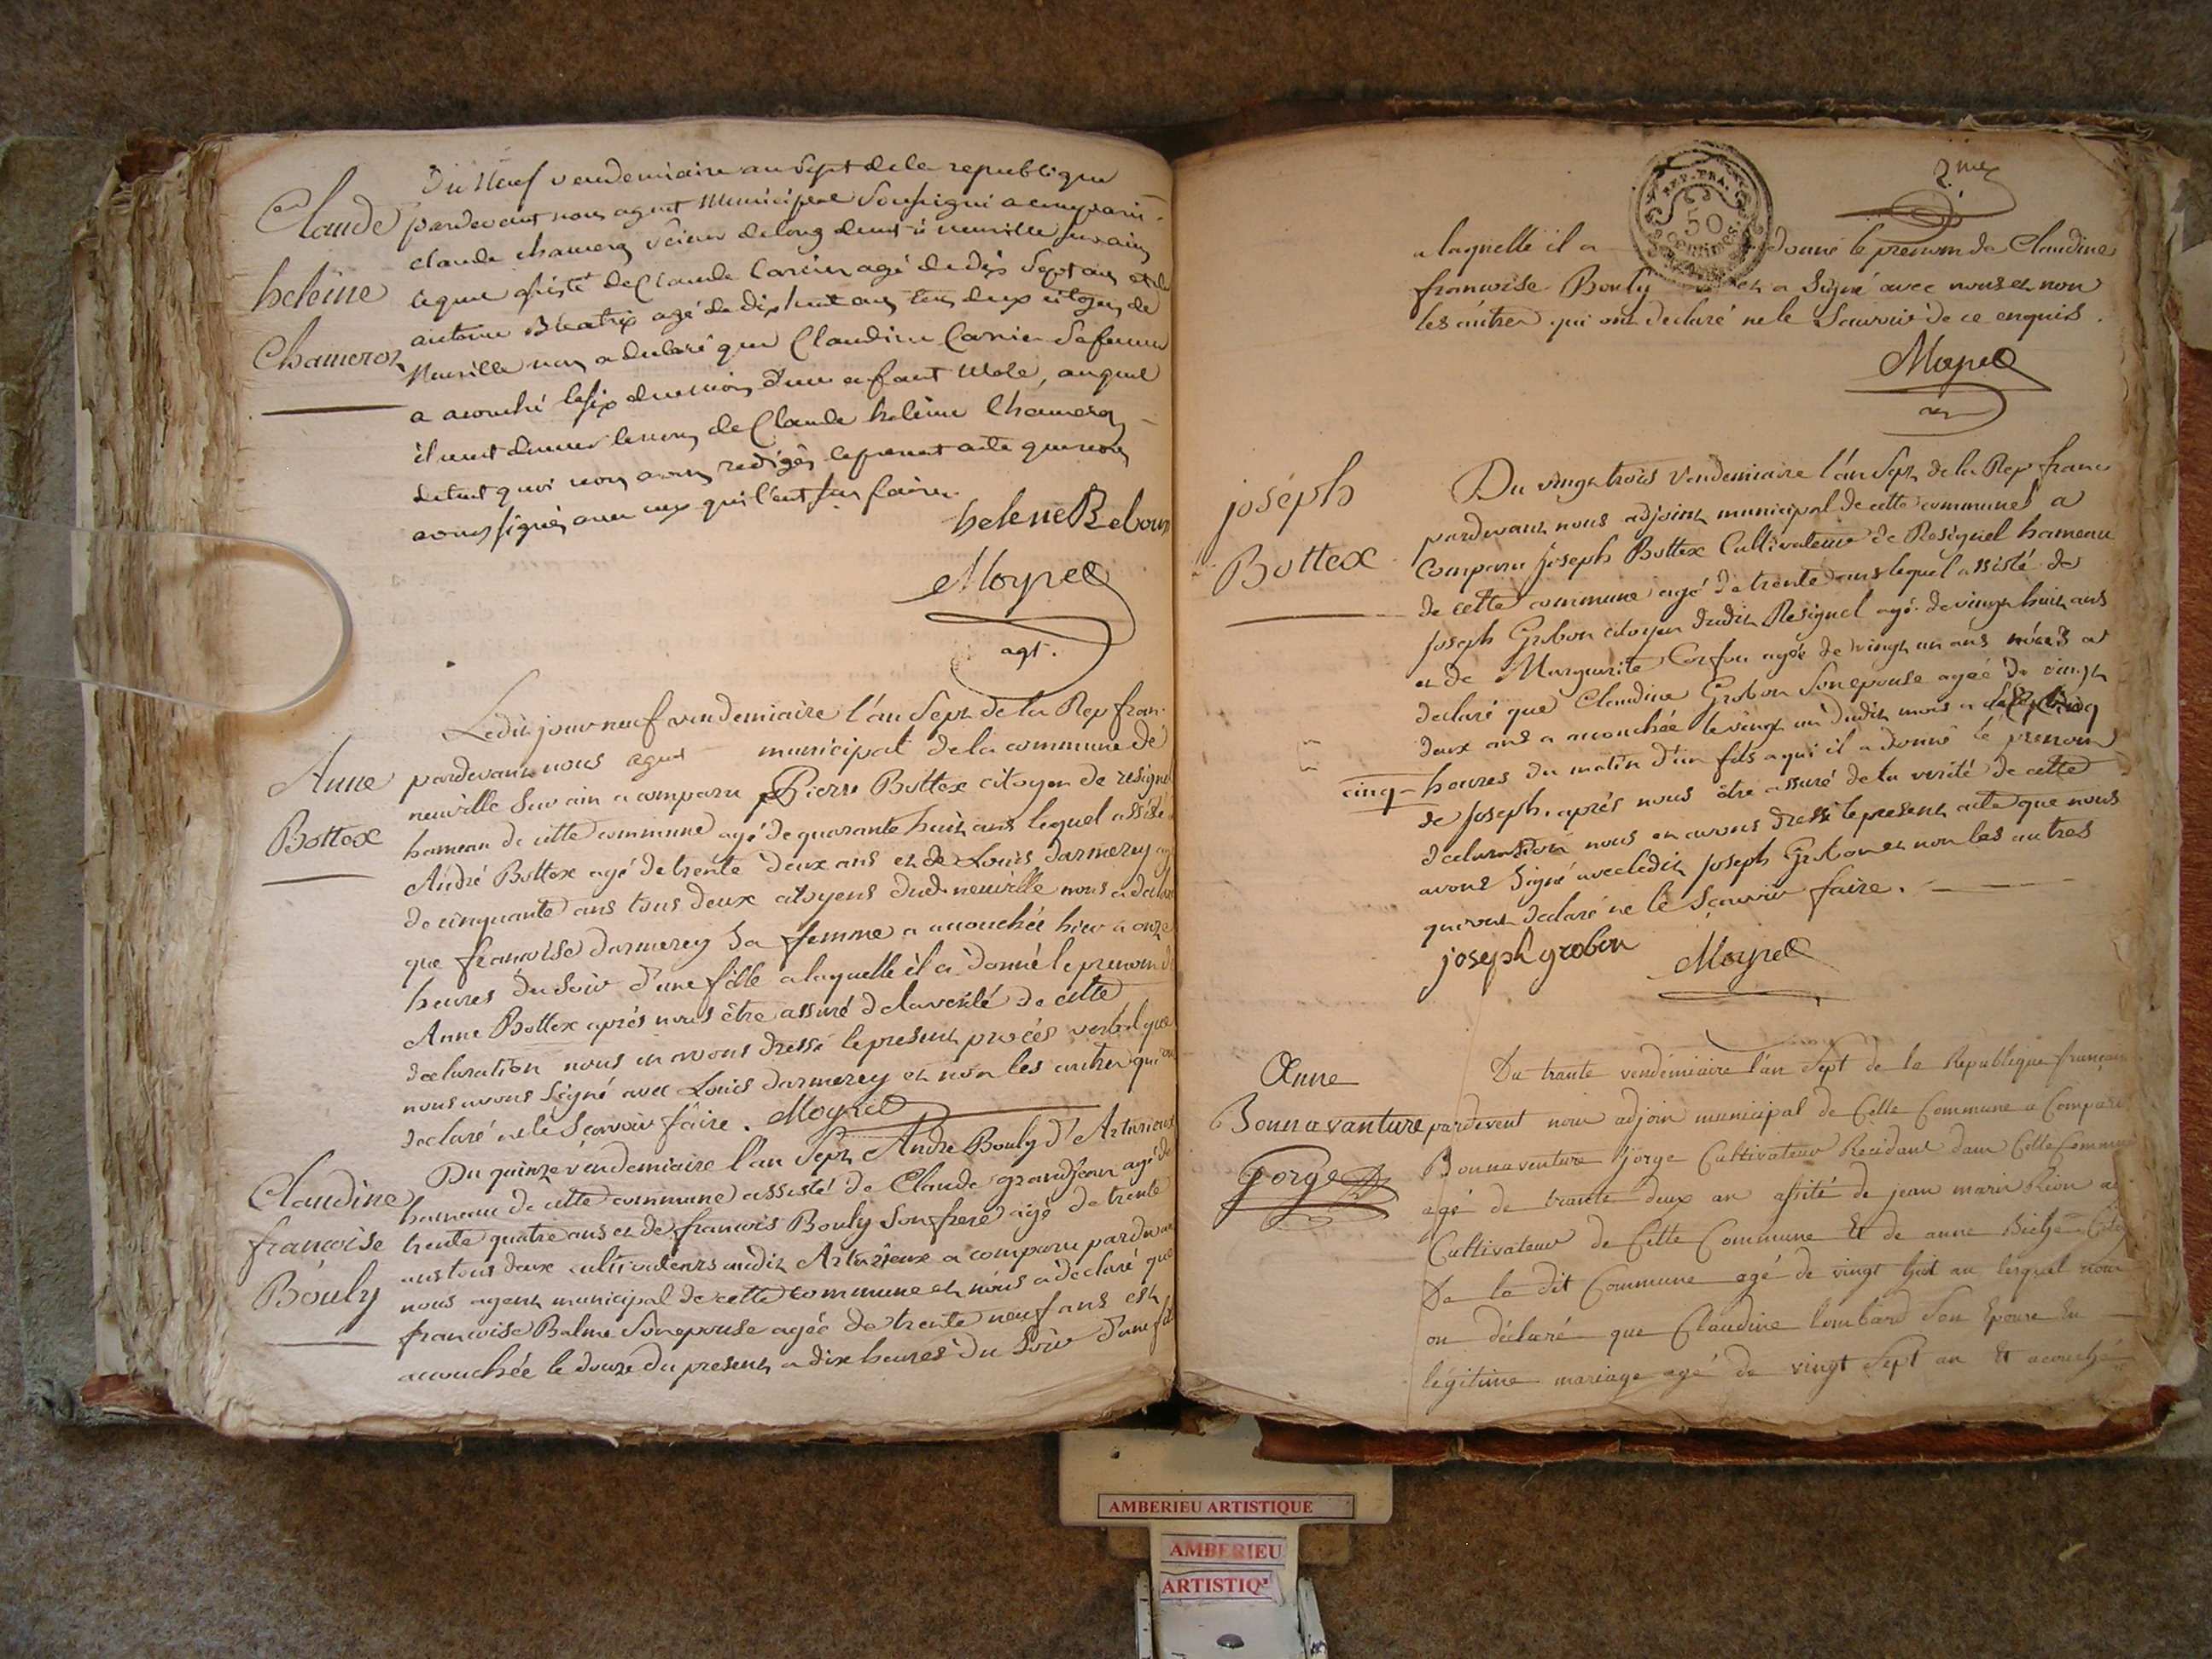 Du Neuf vendemiaire an Sept de la republique
Claude pardevant nous agent Municipal Soussigné a comparu
claude chameroz scieur de long demt à neuville sur ain
heleine lequel assisté de Claude Carrier agé de dix Sept ans et de
antoine Béatrix agé de dix huit ans tous deux citoyens de
Chameroz Neuville nous a declaré que Claudine Carrier Sa femme
a acouché le six du mois d'un enfant Mâle, auquel
il veut donner le nom de Claude helèine Chameroz
de tout quoi nous avons redigés le present acte que nous
avons signés avec ceux qui l'ont su faire.
helene Rebour
Moyret
agt.
Ledit jour neuf vendemiaire l'an Sept de la Rep fran.
Anne pardevant nous agent municipal de la commune de
neuville Sur ain a comparu Pierre Bottex citoyen de resignel
Bottex hameau de cette commune agé de quarante huit ans lequel assisté
André Bottex agé de trente deux ans et de Louis darmerey
de cinquante ans tous deux citoyens dud. neuville nous a declaré
que francoise darmerey Sa femme a accouchée hier a onze
heures du Soir d'une fille a laquelle il a donné le prenom de
Anne Bottex après nous être assuré de la verité de cette
declaration nous en avons dressé le present procés verbal que
nous avons Signé avec Louis darmerey et non les autres qui ont
declaré ne le Scavoir faire. Moyret
Du quinze vendemiaire l'an Sept André Bouly d'Arturieux
Claudine hameau de cette commune assisté de Claude grandjean agé de
trente quatre ans et de francois Bouly Son frere agé de trente
francoise ans tous deux cultivateurs audit Arturieux a comparu pardevant
nous agent municipal de cette commune et nous a déclaré que
Bouly francoise Balme Son epouse agée de trente neuf ans est
accouchée le douze du present a dix heures du Soir d'une fille
2.me
REP. FRA.
50
CENTIMES
a laquelle il a donné le prenom de Claudine
francoise Bouly et a Signé avec nous et non
les autres qui ont declaré ne le Scavoir de ce enquis.
Moyret
Du vingt trois Vendemiaire l'an Sept de la Rep franc
joséph pardevant nous adjoint municipal de cette commune a
Bottex Comparu joseph Bottex Cultivateur de Résignel hameau
de cette commune agé de trente ans lequel assisté de
joseph Grobon citoyen dudit Resignel agé de vingt huit ans
et de Marguerite agée de vingt un ans nous a
declaré que Claudine Grobon Son épouse agée de vingt
deux ans a accouchée le vingt un dudit mois a
cinq heures du matin d'un fils a qui il a donné le prenom
de joseph. après nous être assuré de la verité de cette
declaration nous en avons dressé le present acte que nous
avons Signé avec ledit joseph Grobon et non les autres
qui ont declaré ne le Sçavoir faire.
joseph grobon Moyret
Du trante vendémiaire l'an Sept de la République français
Anne
Bonnavanture pardevent nous adjoin municipal de Cette Commune a Comparu
Gorge Bonnaventure Gorge Cultivateur Résidant dans Cette Commune
agé de trante deux an assité de jean marie Rion
Cultivateur de Cette Commune Et de anne
De la dit Commune agé de vingt huit an lesquel nous
on déclaré que Claudine lombard Son Epouse En
légitime mariage agé de vingt Sept an Et acouché
AMBERIEU ARTISTIQUE
AMBERIEU
ARTISTIQ